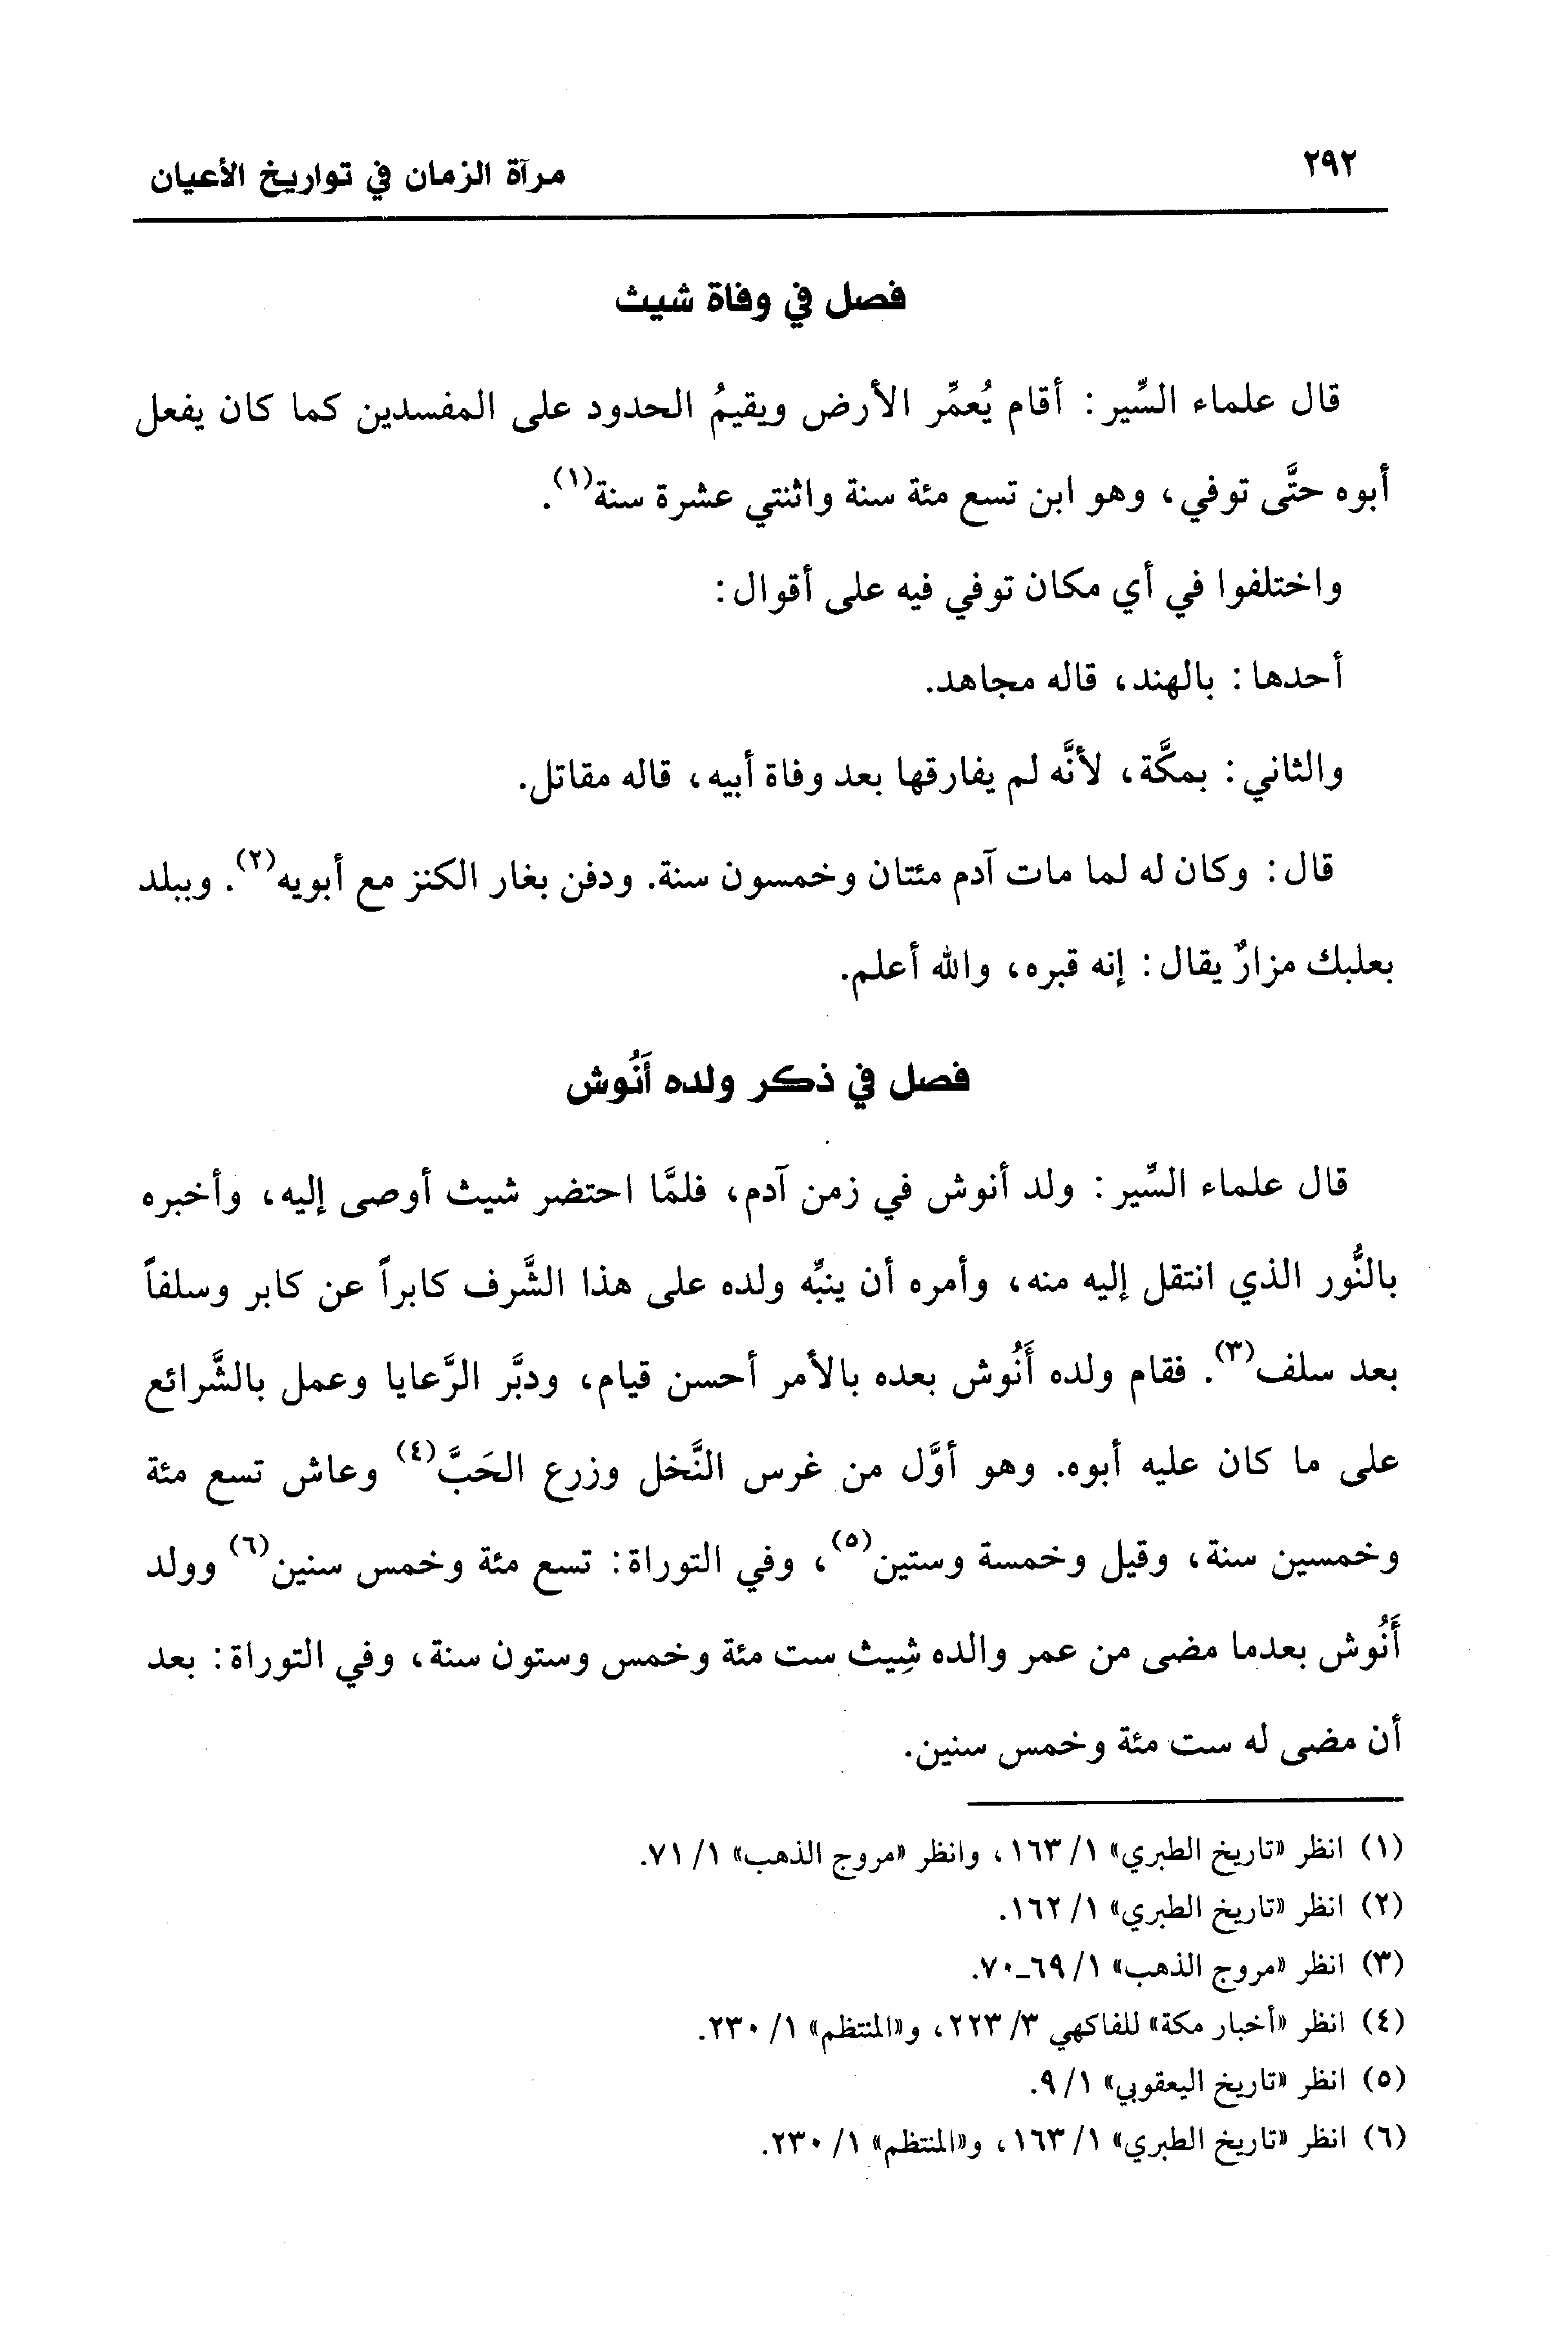 ٢٩٢
مرآة الزمان في تواريخ الأعيان
فصل في وفاة شيث
قال علماء السِّير: أقام يُعمِّر الأرض ويقيمُ الحدود على المفسدين كما كان يفعل
أبوه حتَّى توفي، وهو ابن تسع مئة سنة واثنتي عشرة سنة(١).
واختلفوا في أي مكان توفي فيه على أقوال:
أحدها: بالهند، قاله مجاهد.
والثاني: بمكَّة، لأنَّه لم يفارقها بعد وفاة أبيه، قاله مقاتل.
قال: وكان له لما مات آدم مئتان وخمسون سنة. ودفن بغار الكنز مع أبويه(٢). وببلد
بعلبك مزارٌ يقال: إنه قبره، والله أعلم.
فصل في ذكر ولده أَنُوش
قال علماء السِّير: ولد أنوش في زمن آدم، فلمَّا احتضر شيث أوصى إليه، وأخبره
بالنُّور الذي انتقل إليه منه، وأمره أن ينبِّه ولده على هذا الشَّرف كابراً عن كابر وسلفاً
بعد سلف(٣). فقام ولده أَنُوش بعده بالأمر أحسن قيام، ودبَّر الرَّعايا وعمل بالشَّرائع
على ما كان عليه أبوه. وهو أوَّل من غرس النَّخل وزرع الحَبَّ(٤) وعاش تسع مئة
وخمسين سنة، وقيل وخمسة وستين(٥)، وفي التوراة: تسع مئة وخمس سنين(٦) وولد
أَنُوش بعدما مضى من عمر والده شِيث ست مئة وخمس وستون سنة، وفي التوراة: بعد
أن مضى له ست مئة وخمس سنين.
(١) انظر «تاريخ الطبري» ١/ ١٦٣، وانظر «مروج الذهب» ١/ ٧١.
(٢) انظر «تاريخ الطبري» ١/ ١٦٢.
(٣) انظر «مروج الذهب» ١/ ٦٩ـ٧٠.
(٤) انظر «أخبار مكة» للفاكهي ٣/ ٢٢٣، و«المنتظم» ١/ ٢٣٠.
(٥) انظر «تاريخ اليعقوبي» ١/ ٩.
(٦) انظر «تاريخ الطبري» ١/ ١٦٣، و«المنتظم» ١/ ٢٣٠.